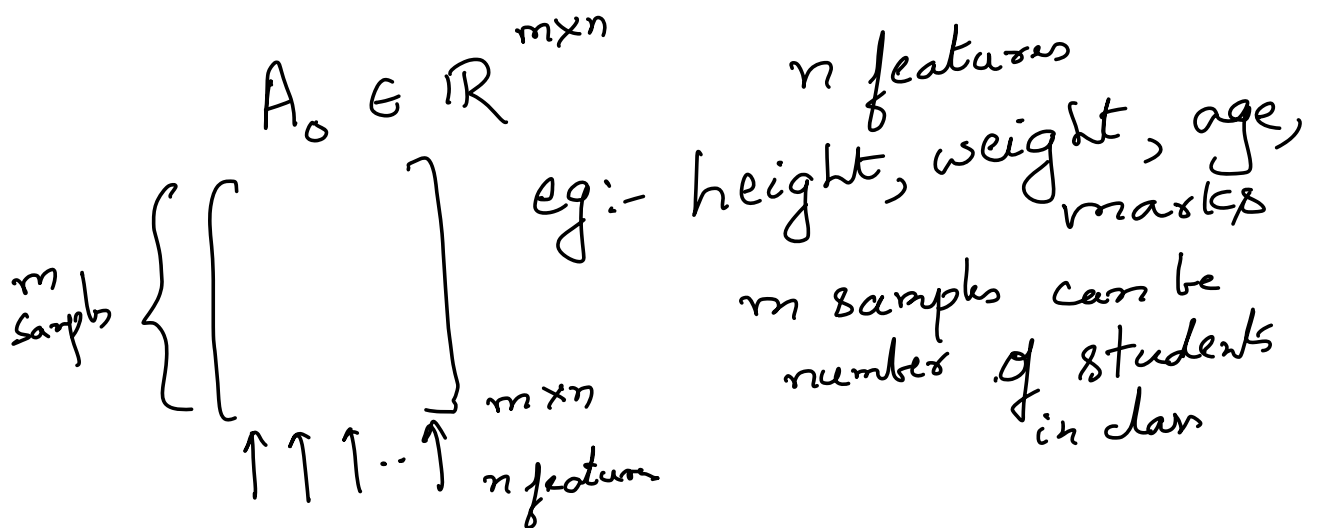 A₀ ∈ ℝ^{m×n}
n features
eg:- height, weight, age,
marks
m
samples
m samples can be
number of students
in class
m×n
n features